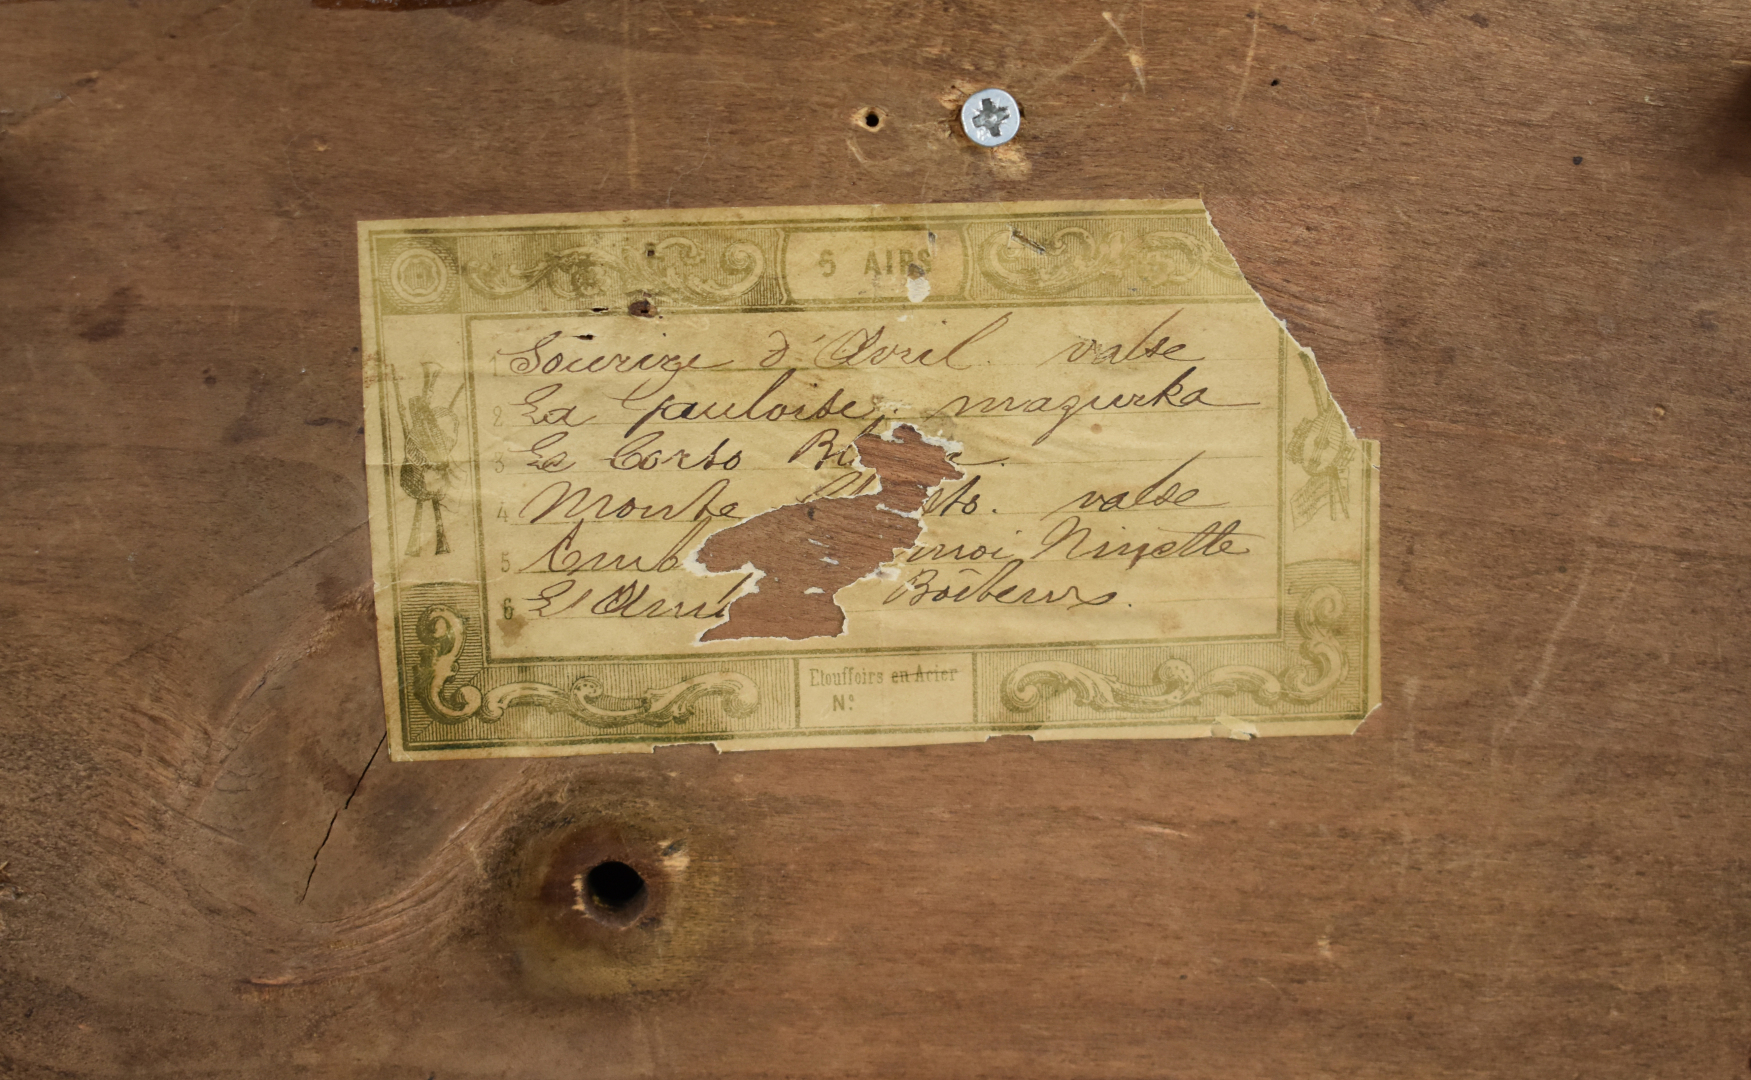 6 AIRS
1 Sourire d'Avril. valse
2 La Gauloise. mazurka
3 Le Corso B
4 Monte sto. valse
5 Emb moi Ninette
6 L'Ami Boîteux.
Etouffoirs en Acier
N°